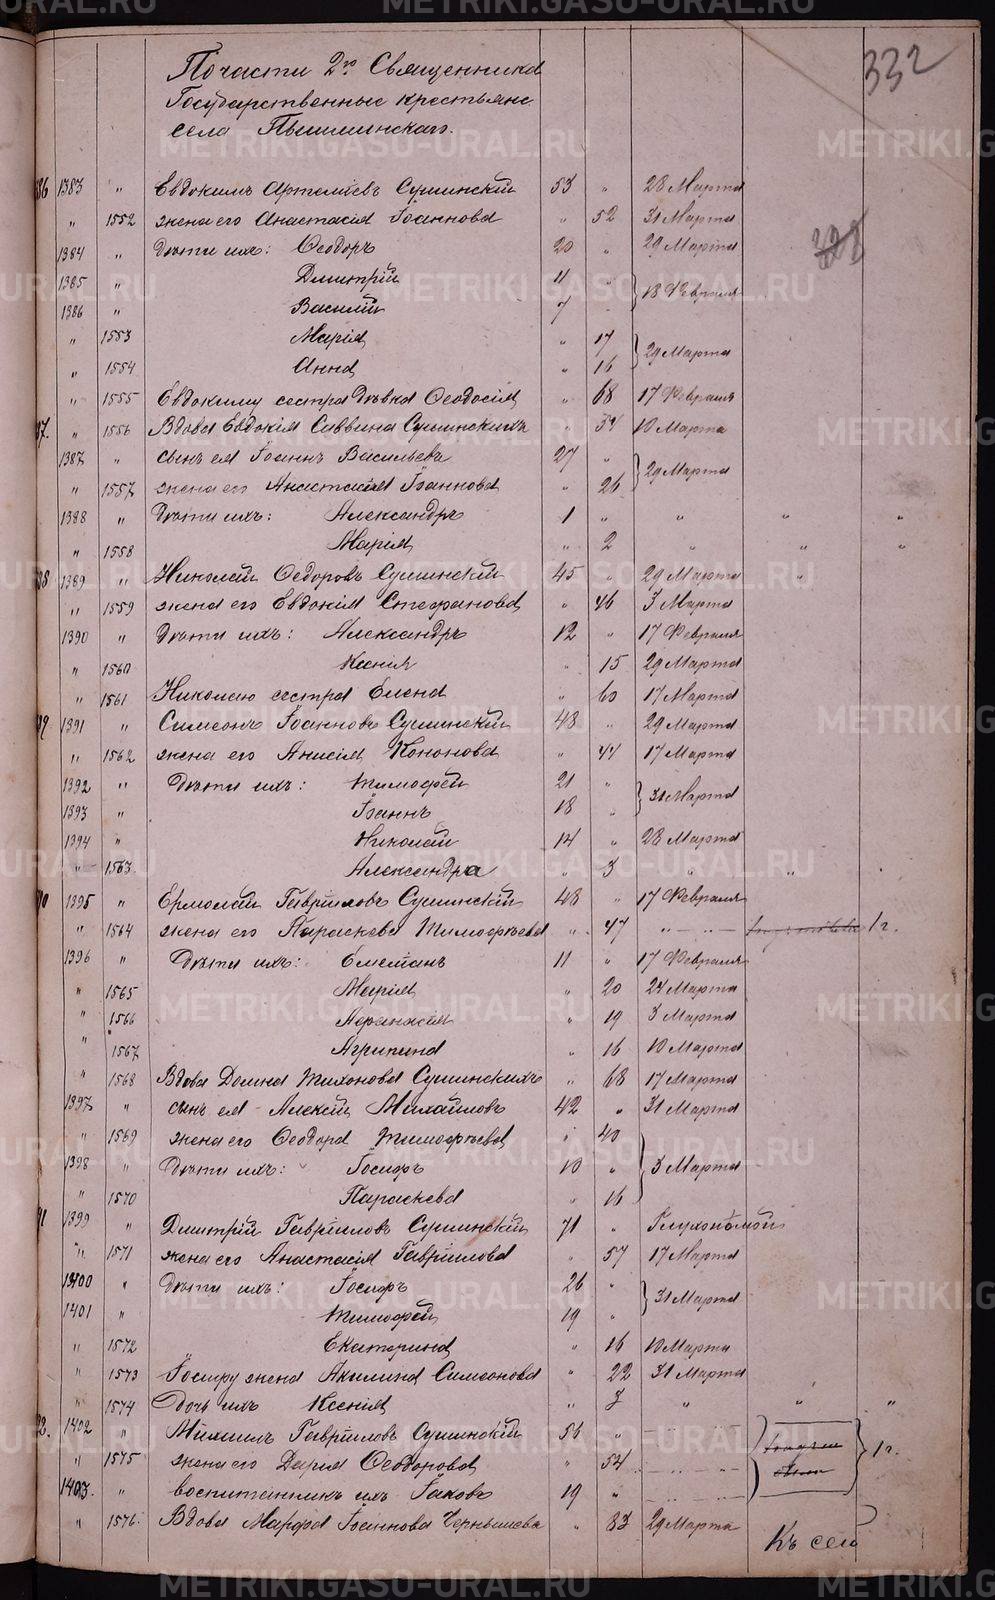 332
По части 2го Священника
Государственные крестьяне
села Пышминскаго.
386 1383 " Евдокимъ Артемьевъ Сушинскій 53 " 28 Марта
" 1552 жена его Анастасія Іоаннова " 52 31 Марта
1384 " Дѣти ихъ: Ѳеодоръ 20 " 29 Марта
1385 " Димитрій 11 " } 18 Февраля
1386 " Василій 7 "
" 1553 Марія " 17 } 29 Марта
" 1554 Анна " 16
" 1555 Евдокиму сестра дѣвка Ѳеодосія " 68 17 Февраля
387. " 1556 Вдова Евдокія Саввина Сушинскихъ " 54 10 Марта
1387 " сынъ ея Іоаннъ Васильевъ 27 " } 29 Марта
" 1557 жена его Анастасія Іоаннова " 26
1388 " Дѣти ихъ: Александръ 1 " " " "
" 1558 Марія " 2 " " "
388 1389 " Николай Ѳедоровъ Сушинскій 45 " 29 Марта "
" 1559 жена его Евдокія Стефанова " 46 3 Марта
1390 " Дѣти ихъ: Александръ 12 " 17 Февраля
" 1560 Ксенія " 15 29 Марта
" 1561 Николаю сестра Елена " 60 17 Марта
389 1391 " Симеонъ Іоанновъ Сушинскій 48 " 29 Марта
" 1562 жена его Анисія Кононова " 44 17 Марта
1392 " Дѣти ихъ: Тимофей 21 " } 31 Марта
1393 " Іоаннъ 18 "
1394 " Николай 14 " 28 Марта
" 1563 Александра " 3 " "
390 1395 " Ермолай Гавріиловъ Сушинскій 48 " 17 Февраля
" 1564 жена его Параскева Тимофѣева " 47 " — " — 1 г.
1396 " Дѣти ихъ: Емеліанъ 11 " 17 Февраля
" 1565 Марія " 20 24 Марта
" 1566 Афанасія " 19 3 Марта
" 1567 Агрипина " 16 10 Марта
" 1568 Вдова Домна Тихонова Сушинскихъ " 68 17 Марта
1397 " сынъ ея Алексій Михайловъ 42 " 31 Марта
" 1569 жена его Ѳеодора Тимофѣева " 40
1398 " Дѣти ихъ: Іосифъ 10 " } 3 Марта
" 1570 Параскева " 16
391 1399 " Димитрій Гавріиловъ Сушинскій 71 " Глухонѣмой
" 1571 жена его Анастасія Гавріилова " 57 17 Марта
1400 " Дѣти ихъ: Іосифъ 26 " } 31 Марта
1401 " Тимофей 19 "
" 1572 Екатерина " 16 10 Марта
" 1573 Іосифу жена Акилина Симеонова " 22 31 Марта
" 1574 Дочь ихъ Ксенія " 3 " " "
392. 1402 " Михаилъ Гавріиловъ Сушинскій 56 "
" 1575 жена его Дарія Ѳеодорова " 54 1 г.
1403. " воспитанникъ ихъ Іаковъ 19 "
" 1576. Вдова Марфа Іоаннова Чернышева " 83 29 Марта
Къ сей